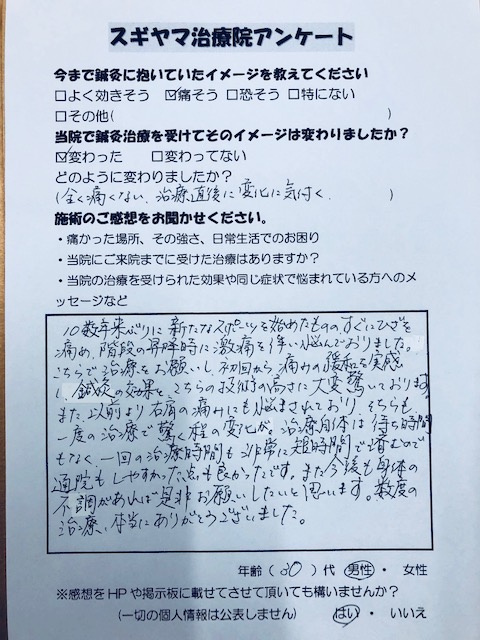 スギヤマ治療院アンケート
今まで鍼灸に抱いていたイメージを教えてください
□よく効きそう ☑痛そう □恐そう □特にない
□その他( )
当院で鍼灸治療を受けてそのイメージは変わりましたか？
☑変わった □変わってない
どのように変わりましたか？
(全く痛くない、治療直後に変化に気付く、 )
施術のご感想をお聞かせください。
・痛かった場所、その強さ、日常生活でのお困り
・当院にご来院までに受けた治療はありますか？
・当院の治療を受けられた効果や同じ症状で悩まれている方へのメ
ッセージなど
10数年来ぶりに新たなスポーツを始めたものの、すぐにひざを
痛め、階段の昇降時に激痛を伴い悩んでおりました。
こちらで治療をお願いし、初回から痛みの緩和を実感
し、鍼灸の効果と、こちらの技術の高さに大変驚いております。
また、以前より右肩の痛みにも悩まされており、そちらも
一度の治療で驚く程の変化が。治療自体は待ち時間
もなく、一回の治療時間も非常に短時間で済むので
通院もしやすかった点も良かったです。また今後も身体の
不調があれば是非お願いしたいと思います。数度の
治療、本当にありがとうございました。
年齢(30)代 男性・ 女性
※感想をHPや掲示板に載せてさせて頂いても構いませんか？
(一切の個人情報は公表しません) はい ・ いいえ